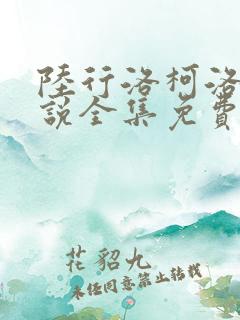 陸行洛柯洛
説全集免費
花貂九
未经同意禁止转载